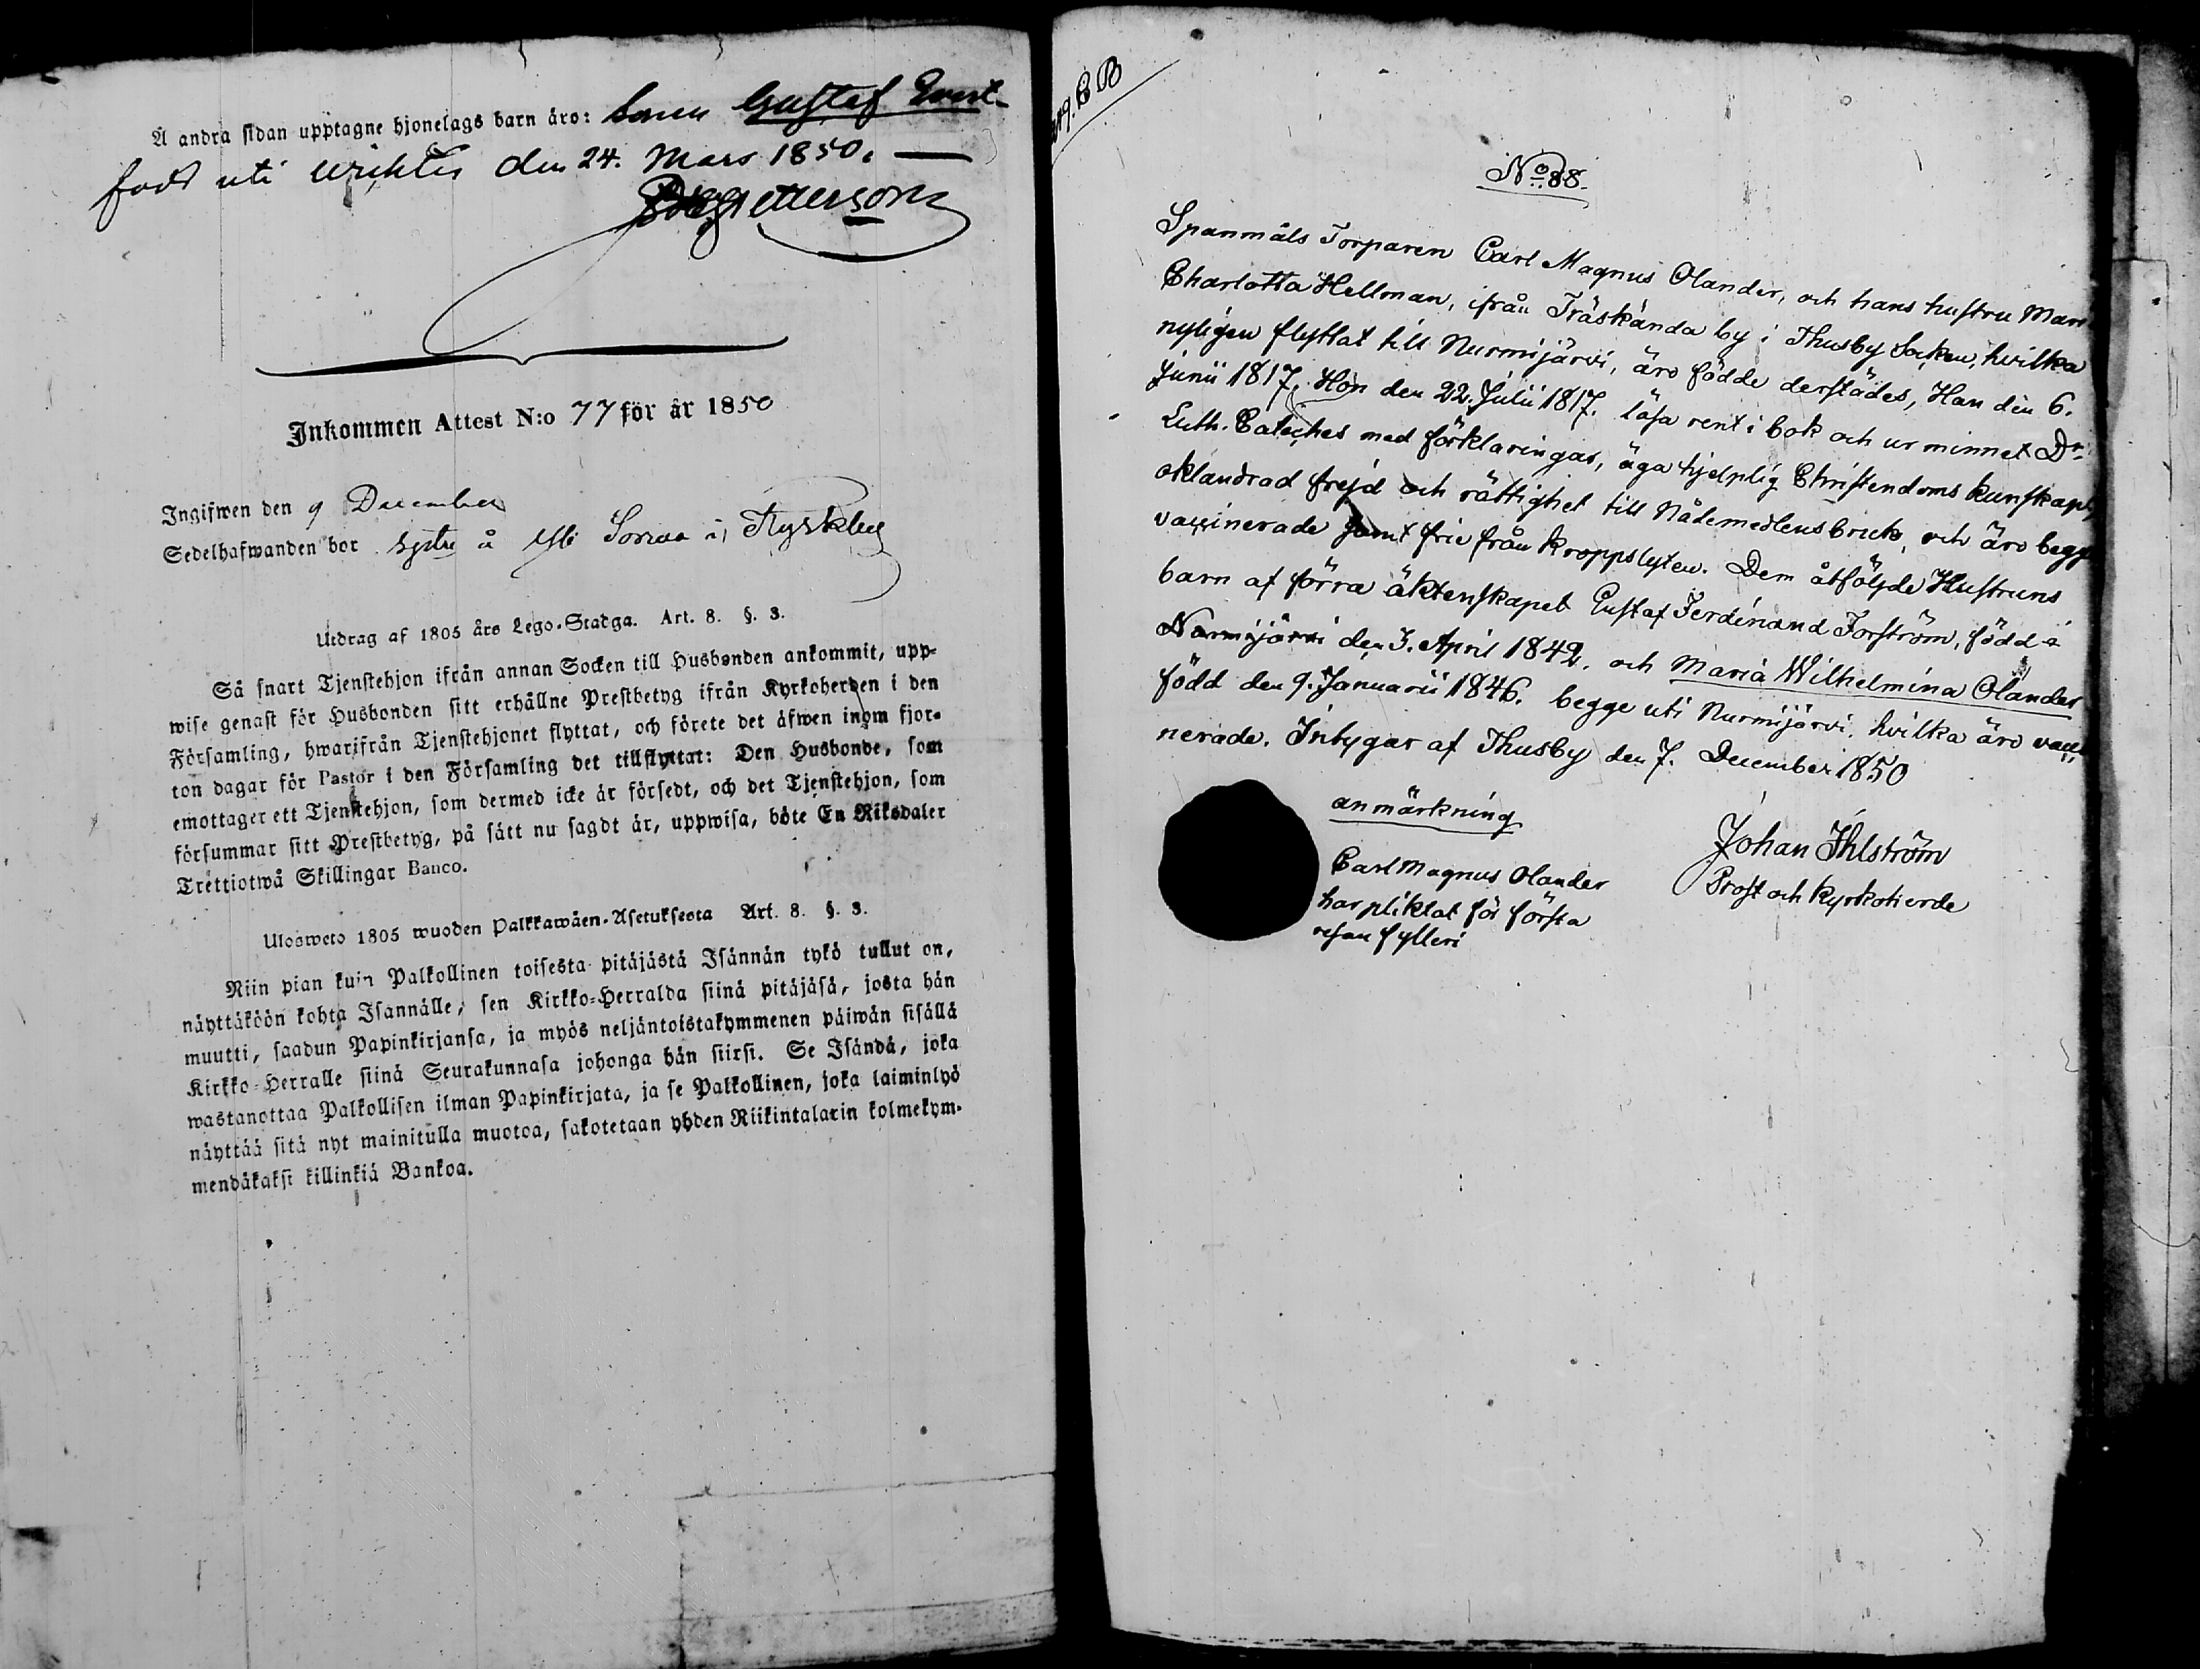 Å andra sidan upptagne hjonelags barn äro: Sonen Gustaf Evert
född uti Wichtis den 24. Mars 1850. —
Pettersson
Inkommen Attest N:o 77 för år 1850
Ingifwen den 9 December
Sedelhafwanden bor å i
Utdrag af 1805 års Lego-Stadga. Art. 8. §. 3.
Så snart Tjenstehjon ifrån annan Socken till Husbonden ankommit, upp-
wise genast för Husbonden sitt erhållne Prestbetyg ifrån Kyrkoherden i den
Församling, hwarifrån Tjenstehjonet flyttat, och förete det äfwen inom fjor-
ton dagar för Pastor i den Församling det tillflyttat: Den Husbonde, som
emottager ett Tjenstehjon, som dermed icke är försedt, och det Tjenstehjon, som
försummar sitt Prestbetyg, på sätt nu sagdt är, uppwisa, böte En Riksdaler
Trettiotwå Skillingar Banco.
Ulosweto 1805 wuoden Palkkawäen-Asetuksesta Art. 8. §. 3.
Niin pian kuin Palkollinen toisesta pitäjästä Isännän tykö tullut on,
näyttäköön kohta Isannälle, sen Kirkko-Herralda siinä pitäjäsä, josta hän
muutti, saadun Papinkirjansa, ja myös neljäntoistakymmenen päiwän sisällä
Kirkko-Herralle siinä Seurakunnasa johonga hän siirsi. Se Isändä, joka
wastanottaa Palkollisen ilman Papinkirjata, ja se Palkollinen, joka laiminlyö
näyttää sitä nyt mainitulla muotoa, sakotetaan yhden Riikintalarin kolmekym-
mendäkaksi killinkiä Bankoa.
No 88.
Spanmåls Torparen Carl Magnus Olander, och hans hustru Mari
Charlotta Hellman, ifrån Träskända by i Thusby Socken, hvilka
nyligen flyttat till Nurmijärvi, äro födde derstädes, Han den 6.
Junii 1817. Hon den 22. Julii 1817. läsa rent i bok och ur minnet Dr
Luth. Cateches med förklaringar, äga hjelplig Christendoms kunskap,
oklandrad frejd och rättighet till Nådemedlens bruk, och äro begge
vaccinerade samt frie från kroppslyten. Dem åtföljde Hustruns
barn af förra äktenskapet Gustaf Ferdinand Forström, född i
Nurmijärvi den 3. April 1842. och Maria Wilhelmina Olander
född den 9. Januarii 1846. begge uti Nurmijärvi. hvilka äro vacci
nerade. Intygar af Thusby den 7. December 1850
anmärkning
Johan Ihlström
Prost och Kyrkoherde
Carl Magnus Olander
har pliktat för första
resan fylleri